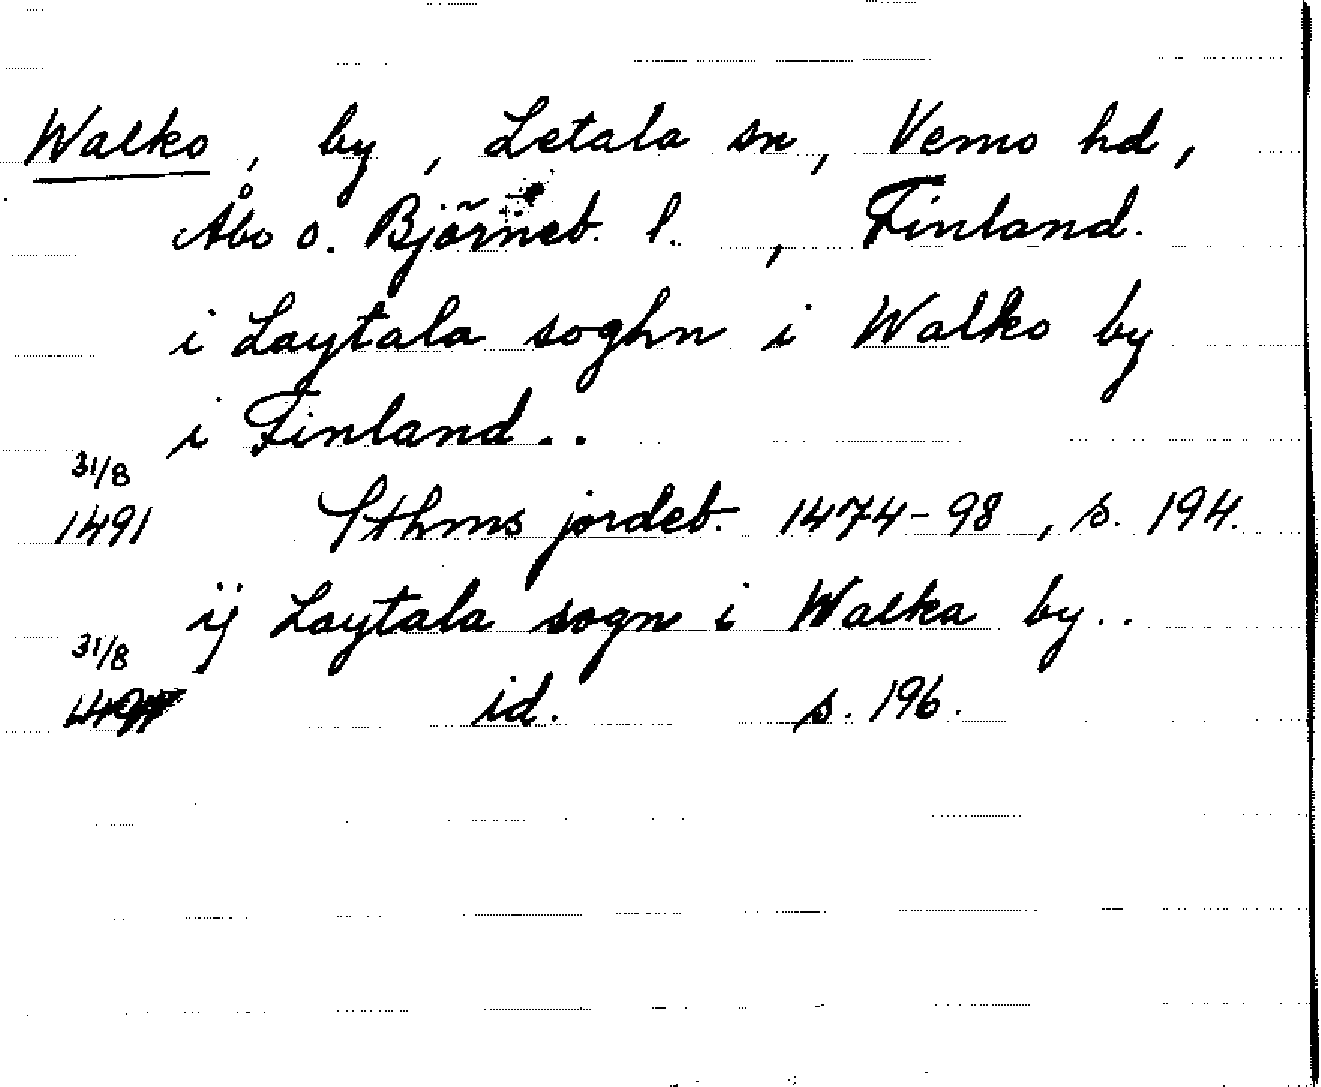 Walko, by, Letala sn, Vemo hd,
Åbo o. Björneb. l., Finland.
i Laytala soghn i Walko by
i Finland..
31/8
1491 Sthms jordeb. 1474-98, s. 194.
ij Laytala sogn i Walka by..
31/8
id. s. 196.